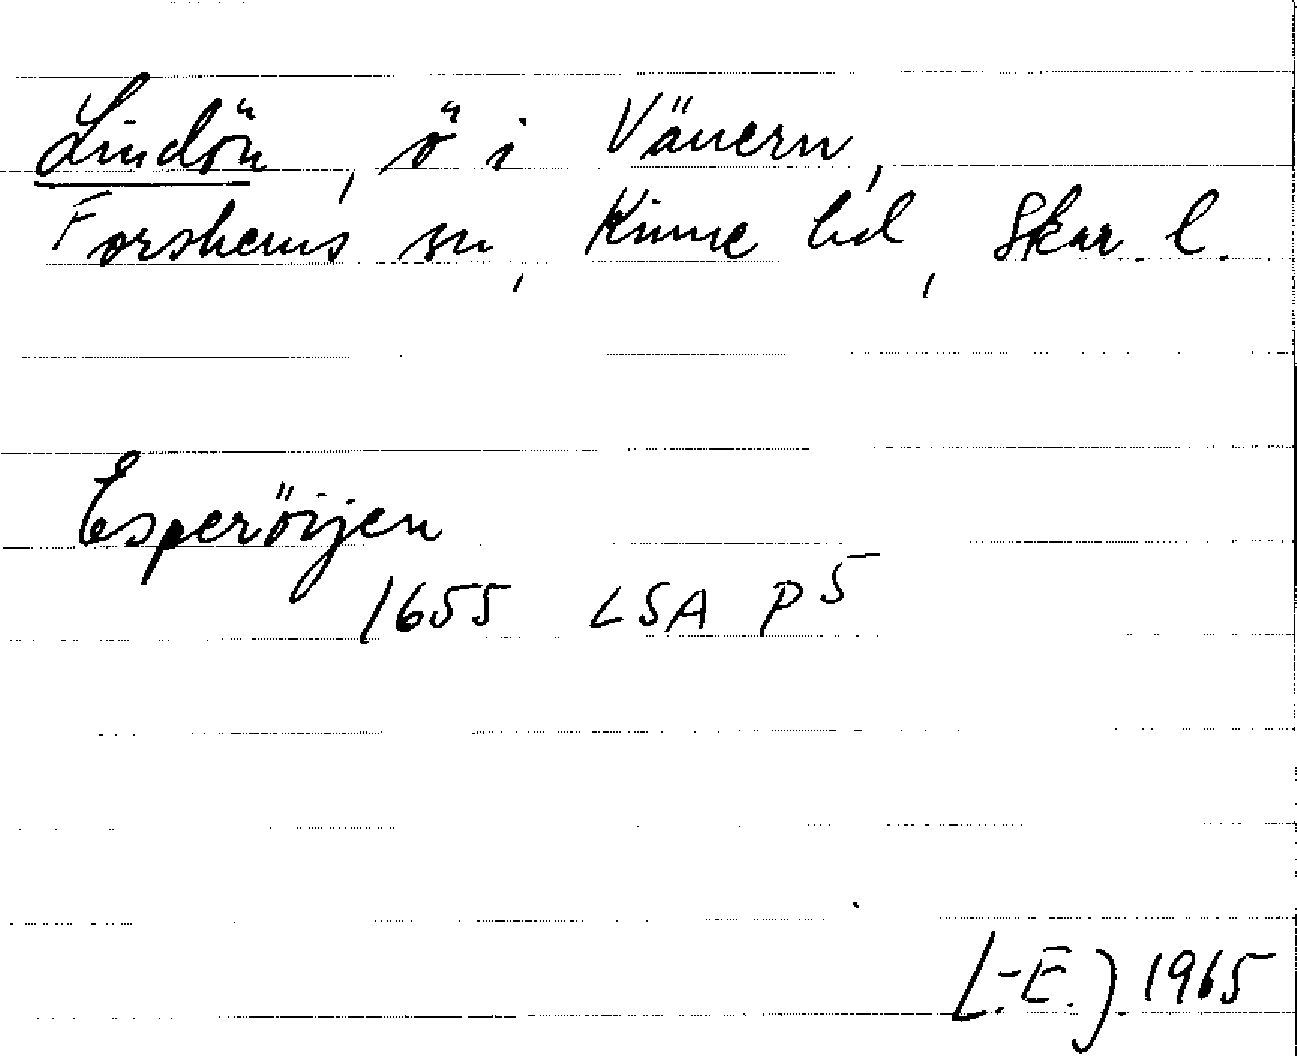 Lindön, ö i Vänern,
Forshems sn, Kinne hd, Skar. l.
Esperöijen
1655 LSA P5
L.-E. J. 1965